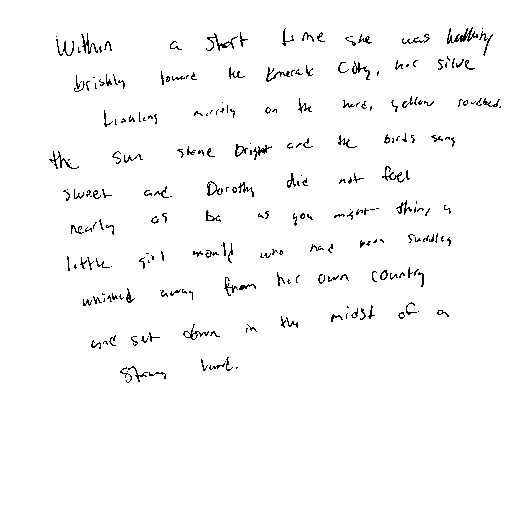 Within a short time she was walking
briskly toward the Emerald City, her silve
tinkling merrily on the hard, yellow roadbed.
the sun shone bright and the birds sang
sweet and Dorothy did not feel
nearly as ba as you might think a
little girl would who had been suddenly
whisked away from her own country
and set down in the midst of a
strange land.